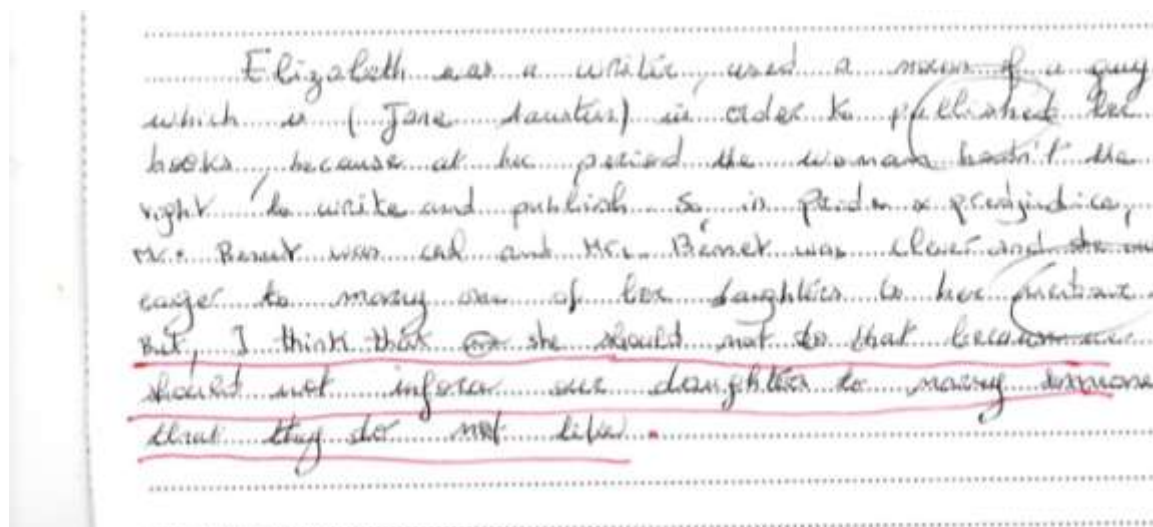 Elizabeth was a writer, used a name of a guy
which is (Jane Austin) in order to published her
books, because at her period the woman hasn't the
right to write and publish. So in & predjindice,
Mr. Benet was and Mrs. Bennet was clever and she
eager to marry one of her daughters to her
But, I think that she should not do that because we
should not inforce our daughters to marry someone
that they do not like.